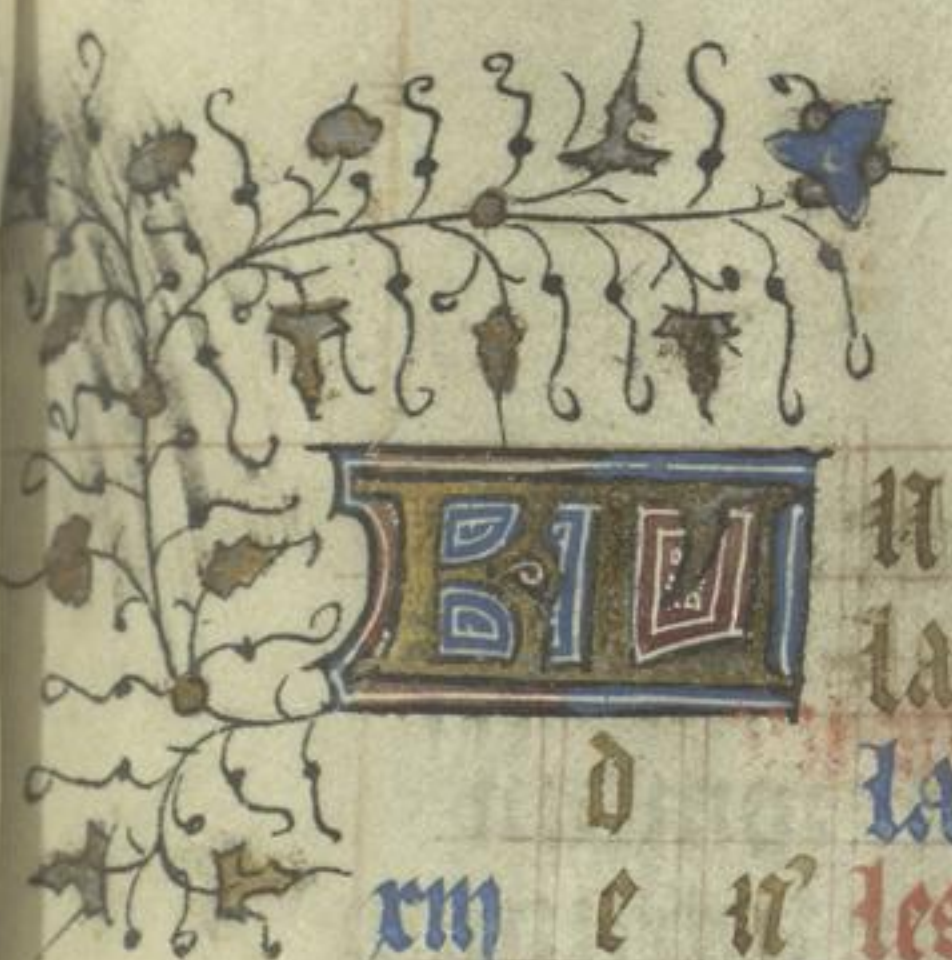 KL n
la
d la
xiij e n' les